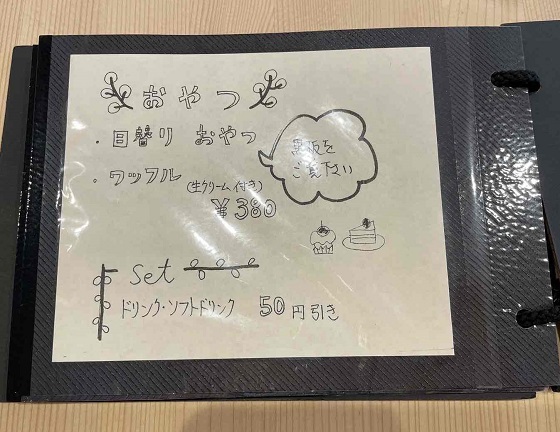 おやつ
・日替り おやつ
黒板を
ご覧下さい
・ワッフル
(生クリーム付き)
¥380
Set
ドリンク・ソフトドリンク 50円引き